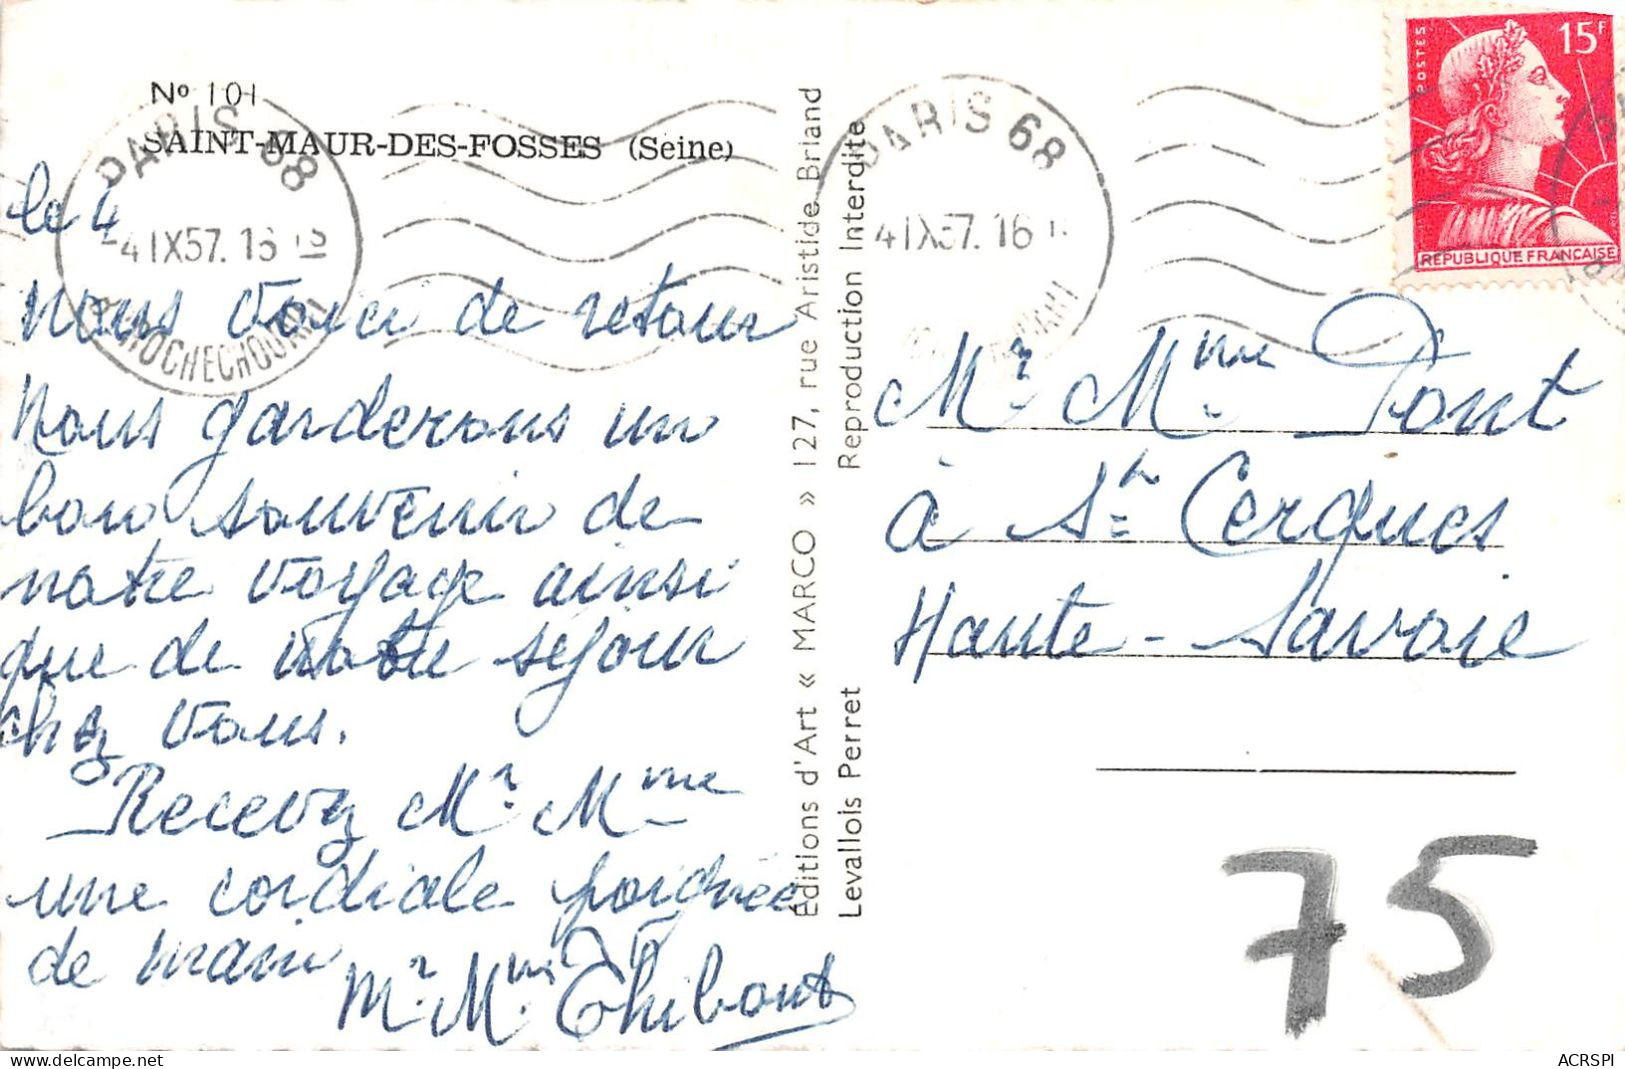 Nº 101
SAINT-MAUR-DES-FOSSES (Seine)
PARIS 68
-4 IX 57. 16
R. ROCHECHOUART
le 4
Nous Voici de retour
Nous garderons un
bon souvenir de
notre voyage ainsi
que de notre séjour
chez Vous.
Recevez Mr Mme
une cordiale poignée
de main
Mr Mme Thibout
Éditions d'Art « MARCO » 127, rue Aristide Briand
Levallois Perret
Reproduction Interdite
PARIS 68
4 IX 57. 16
POSTES
15F
RÉPUBLIQUE FRANÇAISE
Mr Mme Pont
à St Cergues
Haute-Savoie
75
www.delcampe.net
ACRSPI